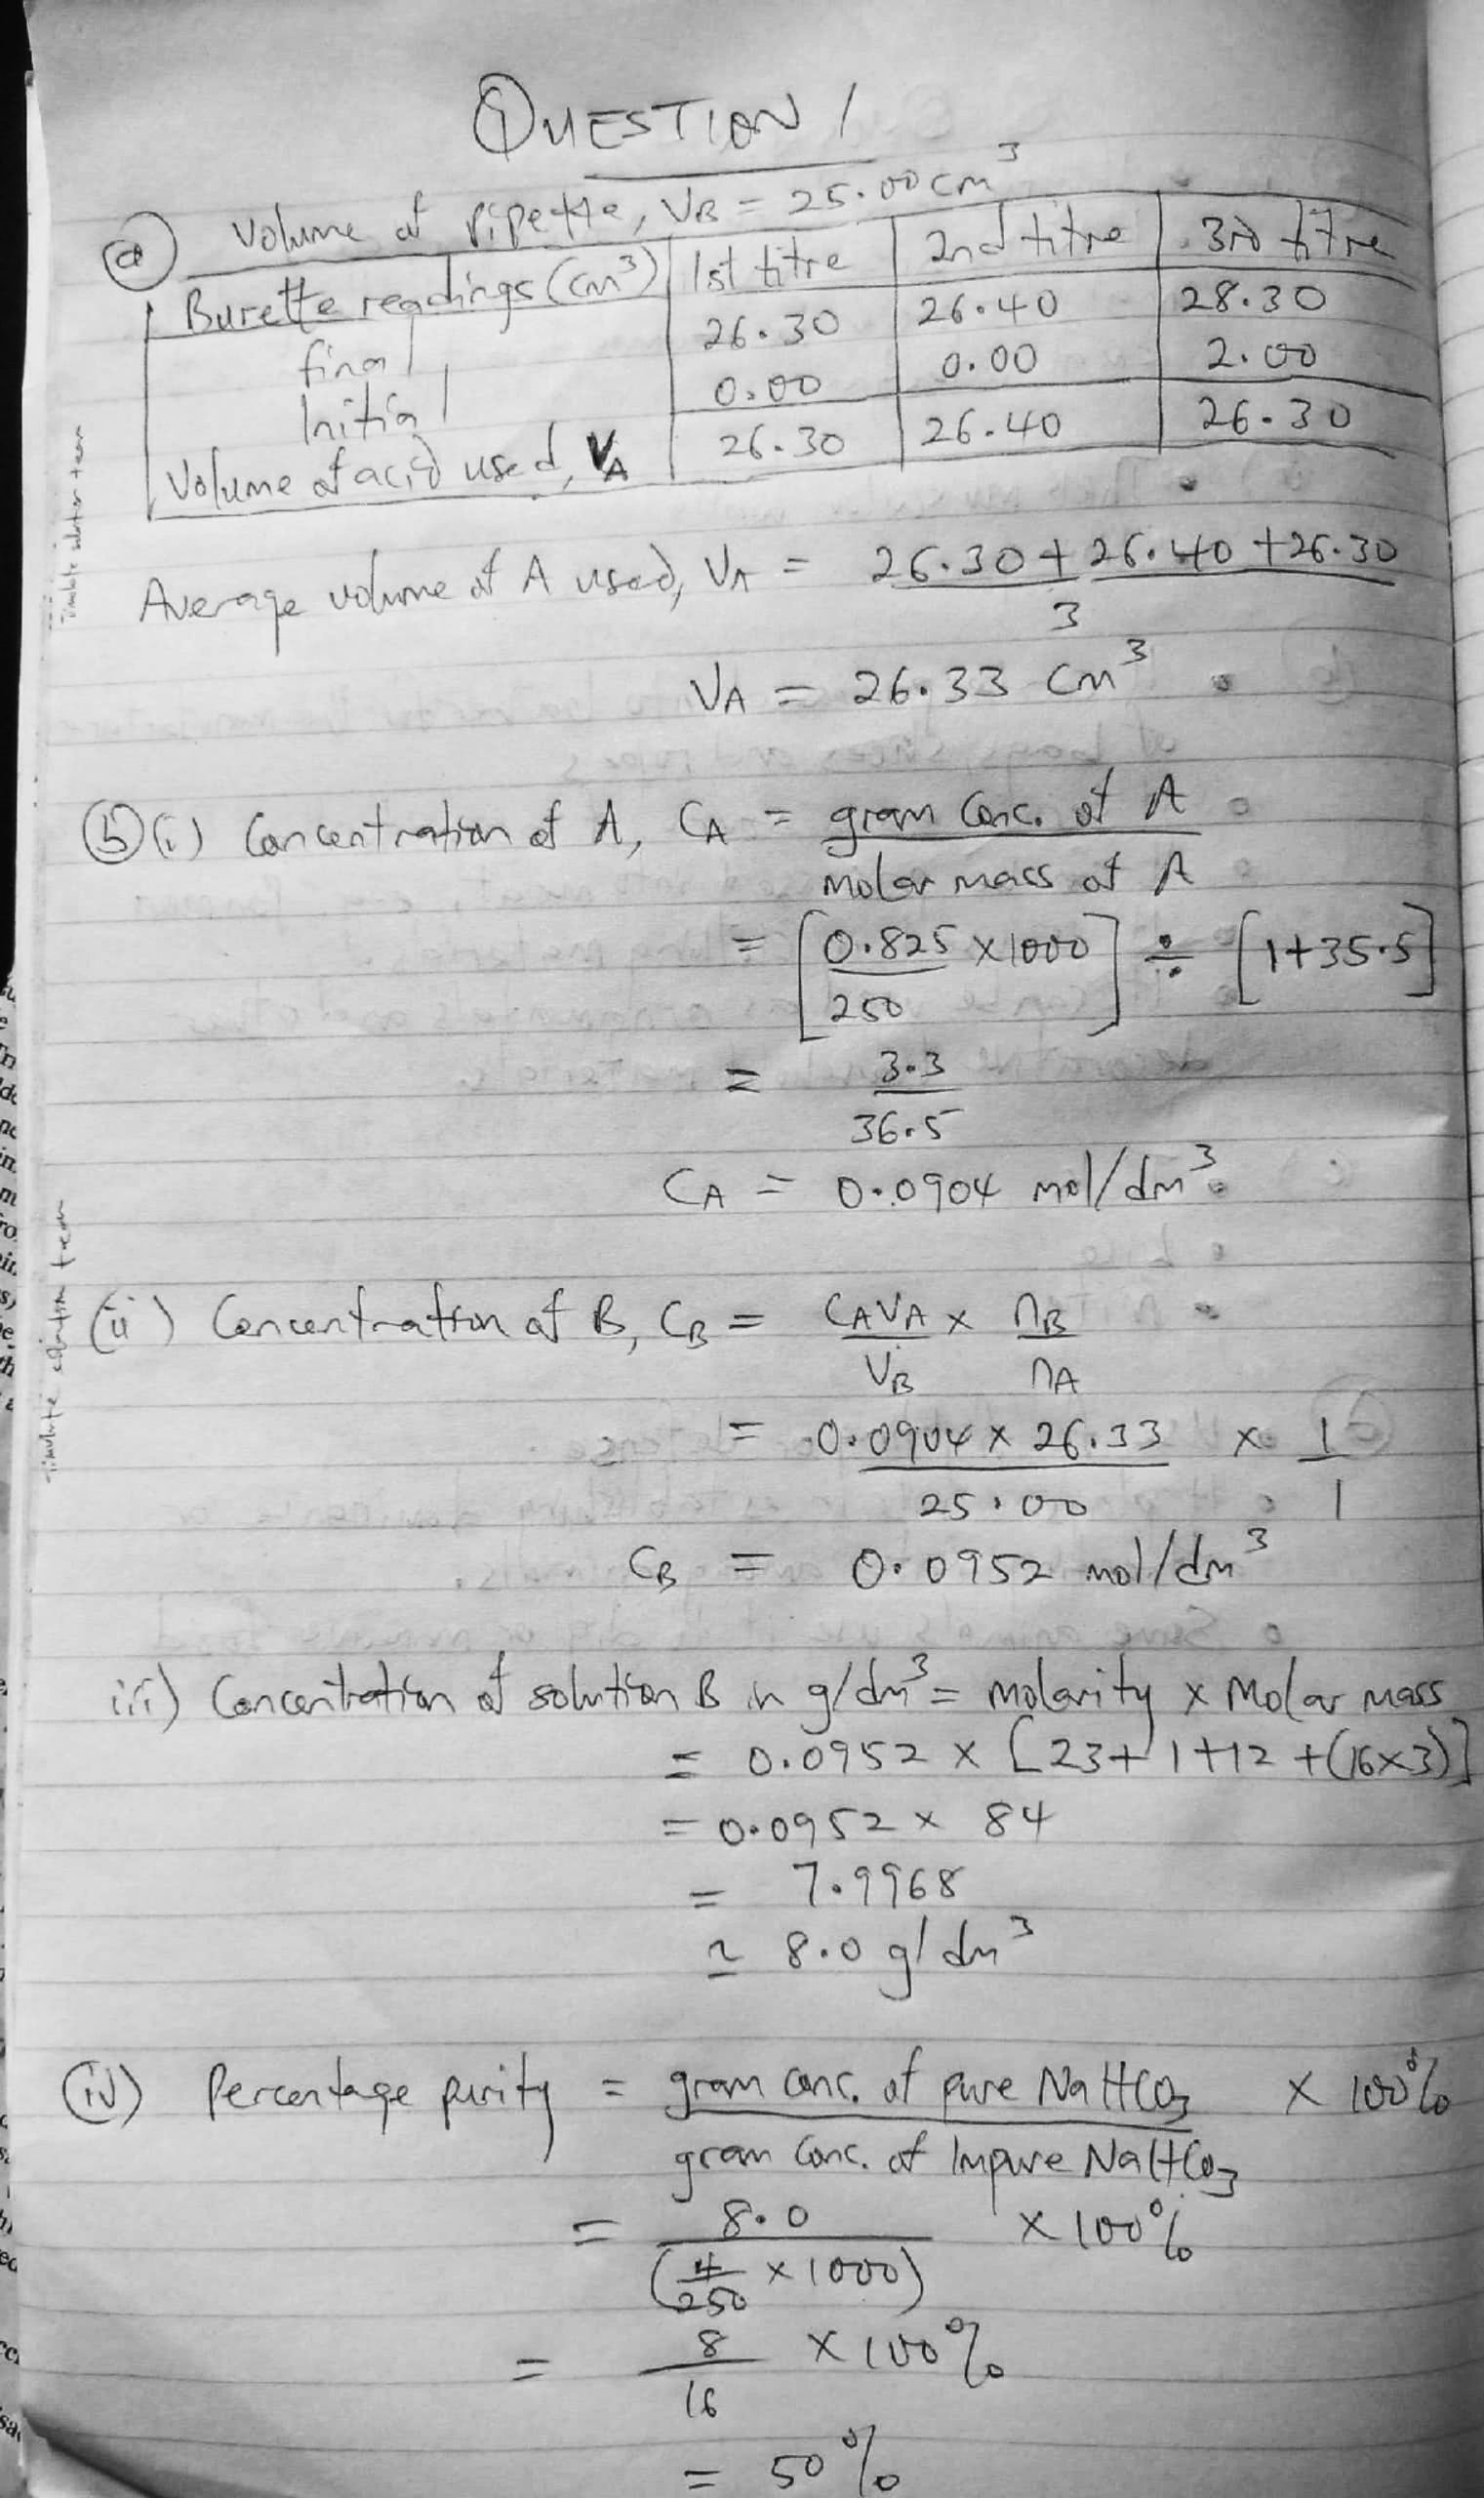 QUESTION 1
(a) Volume of pipette, VB = 25.00 cm³
Burette readings (cm³) | 1st titre | 2nd titre | 3rd titre
final | 26.30 | 26.40 | 28.30
Initial | 0.00 | 0.00 | 2.00
Volume of acid used, VA | 26.30 | 26.40 | 26.30
Average volume of A used, VA = 26.30 + 26.40 + 26.30
3
VA = 26.33 cm³
(b)(i) Concentration of A, CA = gram conc. of A
molar mass of A
= [0.825 × 1000] ÷ [1+35.5]
250
= 3.3
36.5
CA = 0.0904 mol/dm³
(ii) Concentration of B, CB = CAVA × nB
VB nA
= 0.0904 × 26.33 × 1
25.00 1
CB = 0.0952 mol/dm³
iii) Concentration of solution B in g/dm³ = molarity × Molar mass
= 0.0952 × [23+1+12+(16×3)]
= 0.0952 × 84
= 7.9968
≃ 8.0 g/dm³
(iv) Percentage purity = gram conc. of pure NaHCO₃ × 100%
gram conc. of Impure NaHCO₃
= 8.0 × 100%
(4/250 × 1000)
= 8 × 100%
16
= 50%
solution team